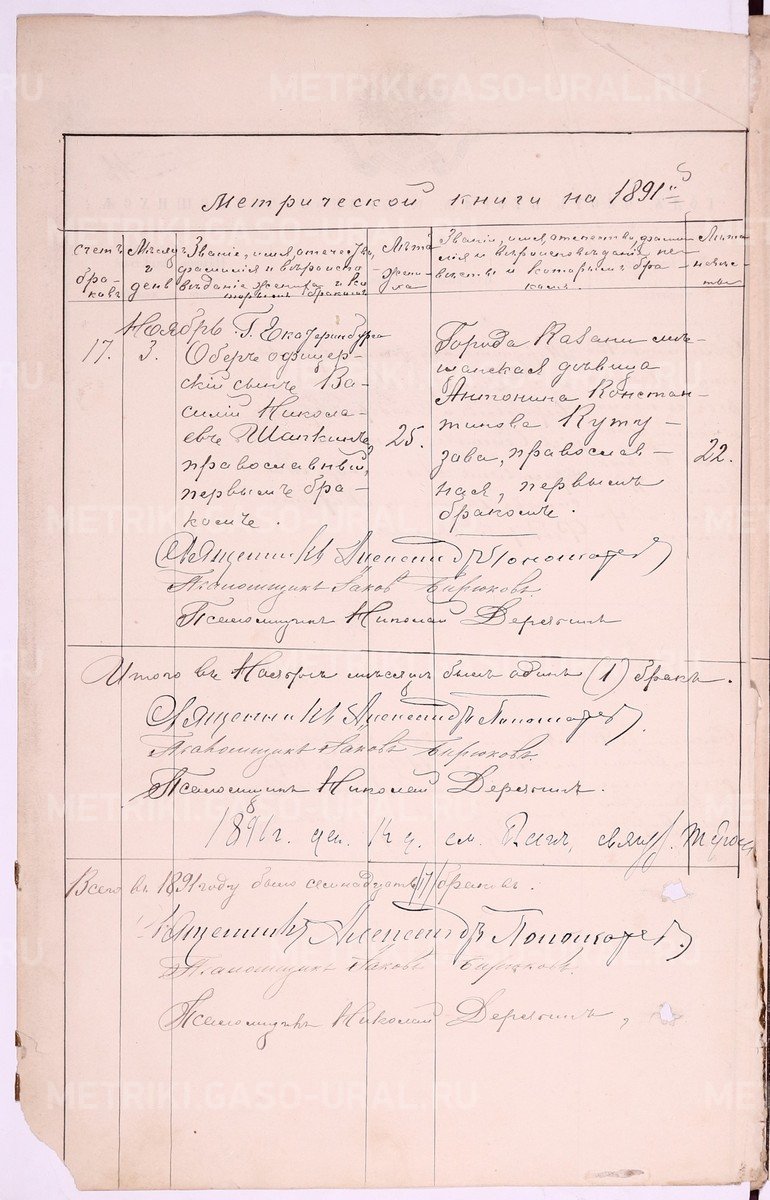 Метрической книги на 1891й
счетъ браковъ
Мѣсяцъ и день
Званіе, имя, отечество,
фамилія и вѣроиспо-
вѣданіе жениха и ко-
торымъ бракомъ
Лѣта жениха
Званіе, имя, отечество, фами-
лія и вѣроисповѣданіе не-
вѣсты и которымъ бра-
комъ
Лѣта невѣсты
Ноябрь.
17.
3.
Г. Екатеринбурга
Оберъ офицер-
скій сынъ Ва-
силій Никола-
евъ Шапкинъ,
православный,
первымъ бра-
комъ.
25.
Города Казани мѣ-
щанская дѣвица
Антонина Констан-
тинова Куту-
зова, православ-
ная, первымъ
бракомъ.
22.
Священникъ Александръ Пономаревъ
Псаломщикъ Іаковъ Бирюковъ
Псаломщикъ Николай Дерябинъ
Итого въ Ноябрѣ мѣсяцѣ былъ одинъ (1) бракъ.
Священникъ Александръ Пономаревъ.
Псаломщикъ Іаковъ Бирюковъ
Псаломщикъ Николай Дерябинъ.
1891 г.
Всего въ 1891 году было семнадцать /17/ браковъ.
Священникъ Александръ Пономаревъ.
Псаломщикъ Іаковъ Бирюковъ.
Псаломщикъ Николай Дерябинъ,
METRIKI.GASO-URAL.RU